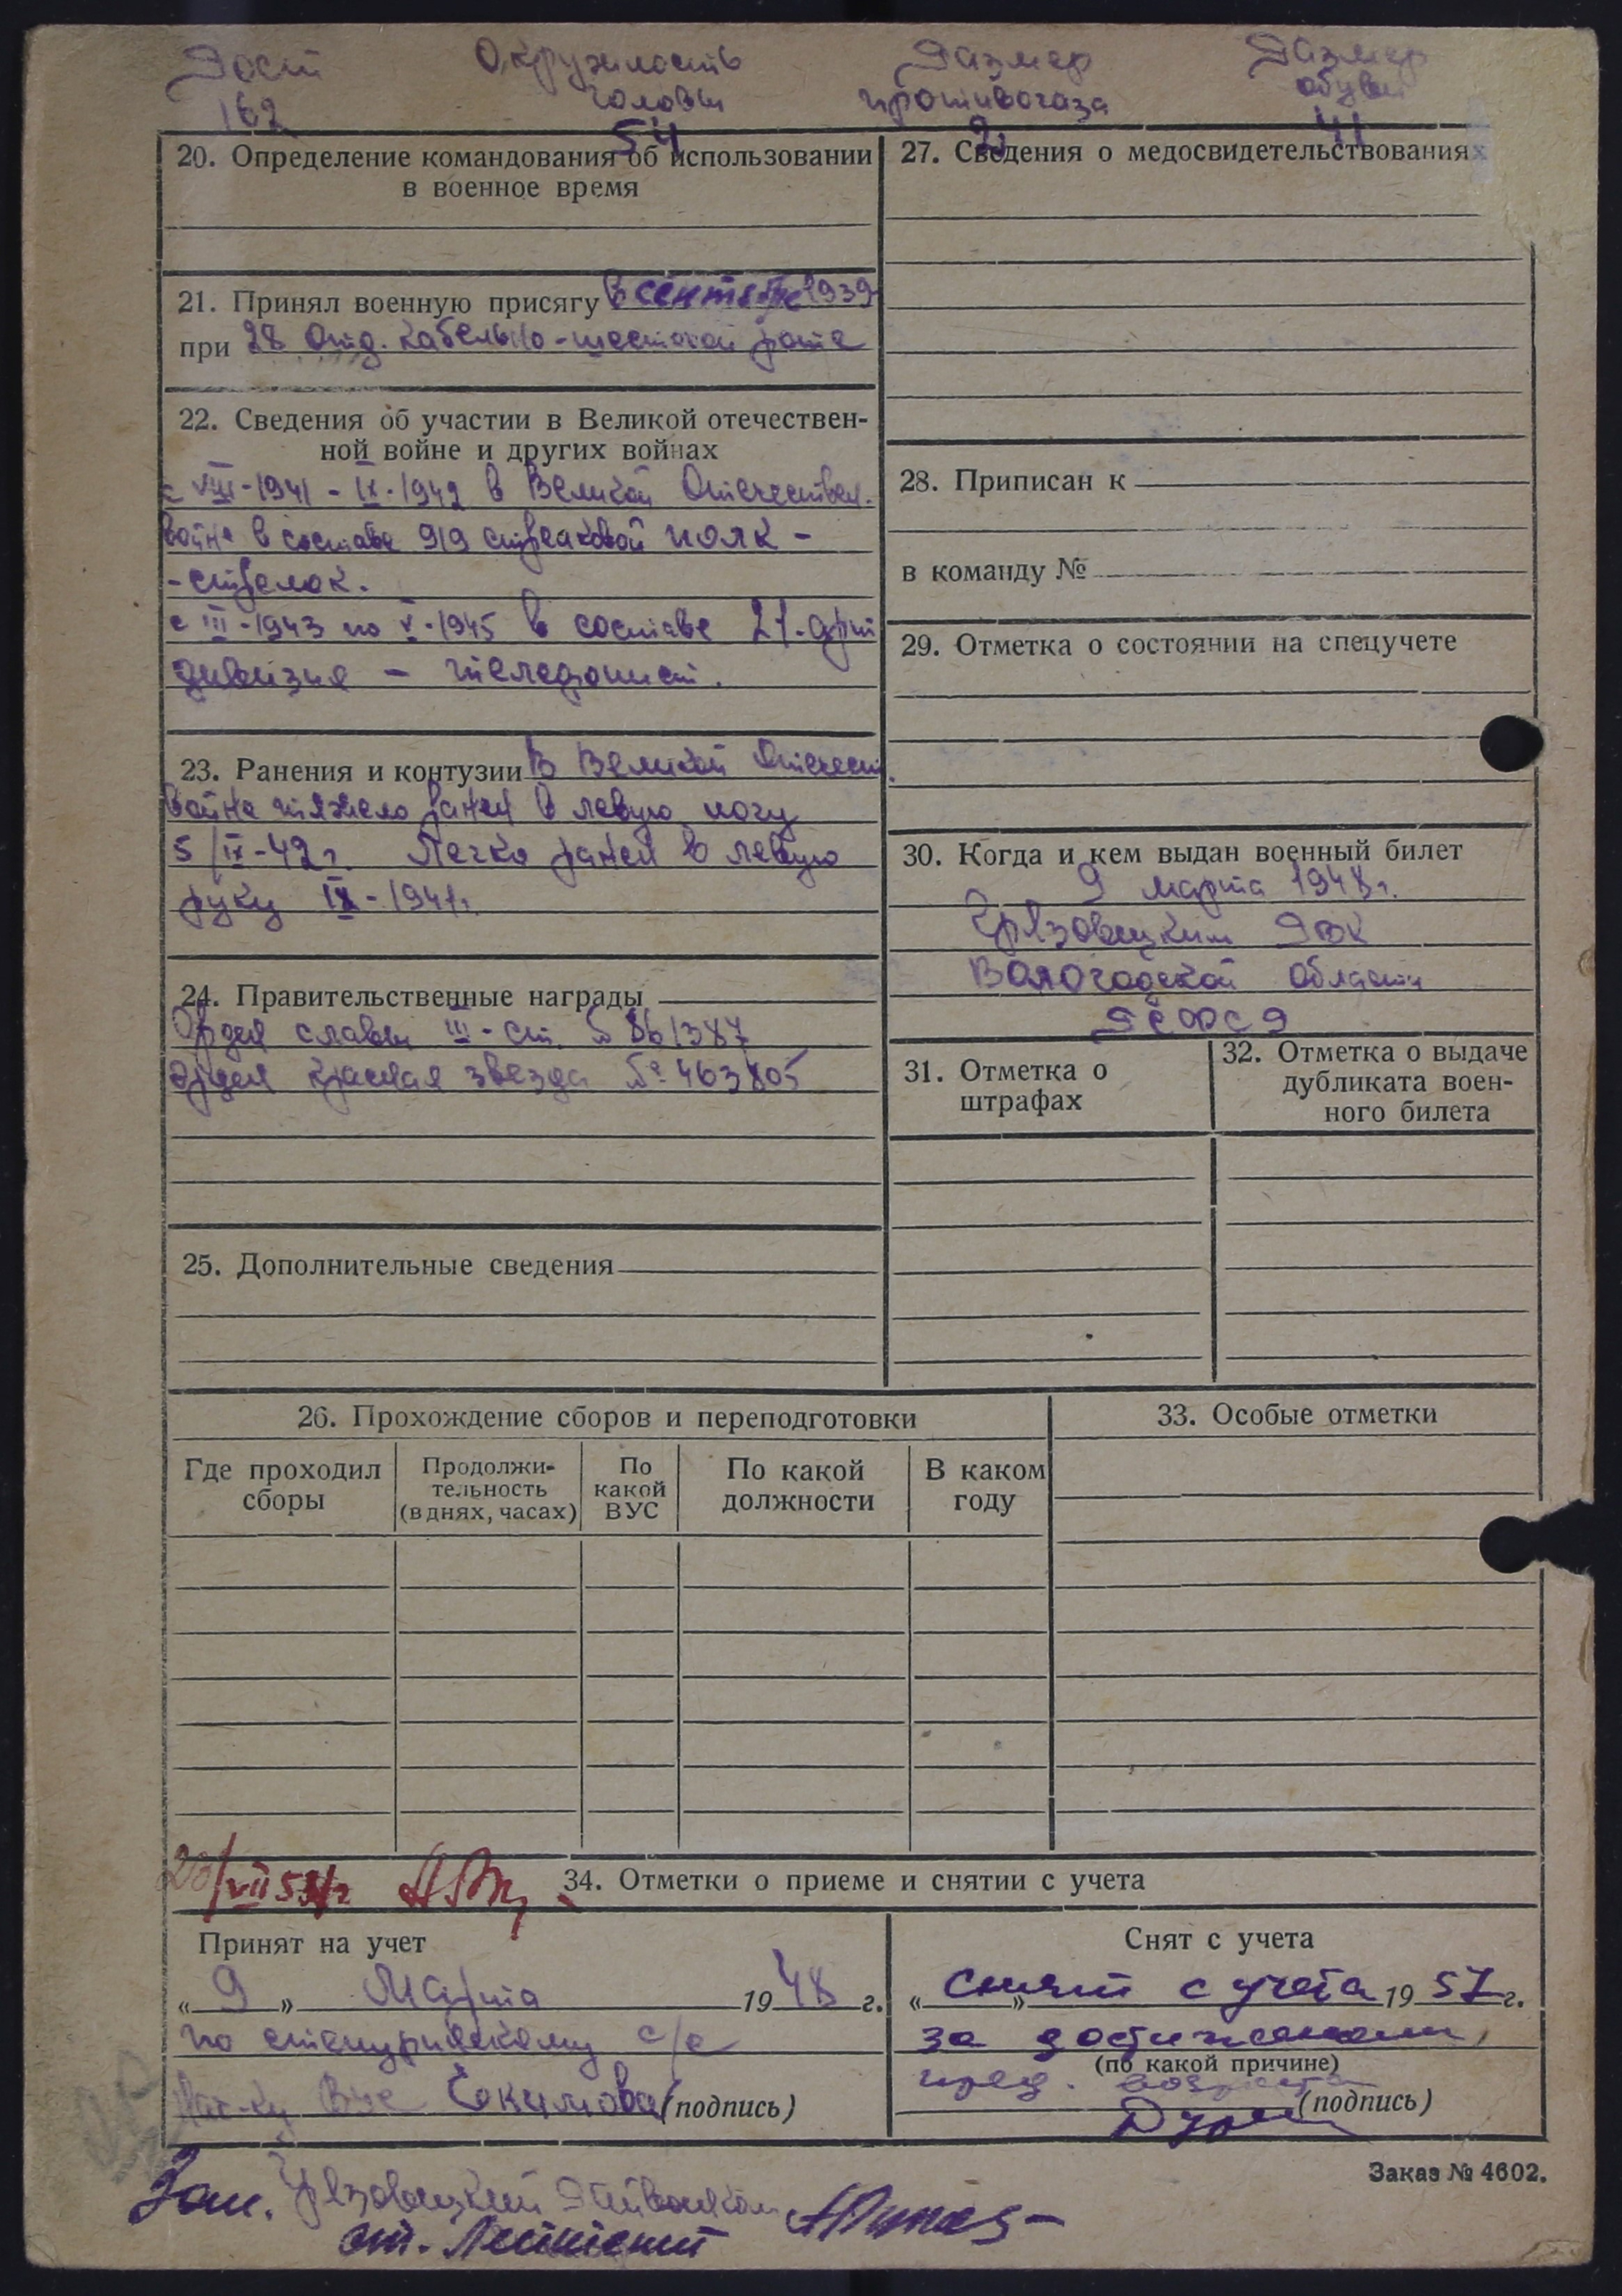 Рост Окружность Размер Размер
головы противогаза обуви
162 54 2 41
20. Определение командования об использовании
в военное время
21. Принял военную присягу В сентябре 1939
при 28 Отд. кабельно-шестовой роте
22. Сведения об участии в Великой отечествен-
ной войне и других войнах
с VIII-1941 - IX-1942 в Великой Отечествен.
войне в составе 919 стрелковой полк -
- стрелок.
с III-1943 по V-1945 в составе 21-арт
дивизия - телефонист.
23. Ранения и контузии В Великой Отечест.
войне тяжело ранен в левую ногу
5/IX-42г. Легко ранен в левую
руку IX-1941г.
24. Правительственные награды
Орден славы III-ст. № 361387
Орден Красная звезда № 463805
25. Дополнительные сведения
27. Сведения о медосвидетельствованиях
28. Приписан к
в команду №
29. Отметка о состоянии на спецучете
30. Когда и кем выдан военный билет
9 марта 1948г.
Грязовецким РВК
Вологодской области
РСФСР
31. Отметка о
штрафах
32. Отметка о выдаче
дубликата воен-
ного билета
26. Прохождение сборов и переподготовки
Где проходил
сборы
Продолжи-
тельность
(в днях, часах)
По
какой
ВУС
По какой
должности
В каком
году
33. Особые отметки
34. Отметки о приеме и снятии с учета
Принят на учет
« 9 » Марта 1948 г.
по с/с
Нач-ку ВУС Ёкимова (подпись)
Снят с учета
« » снят с учета 1957 г.
за достижением
(по какой причине)
пред. возраста
(подпись)
Заказ № 4602.
Зам. Грязовецкий Райвоенком
ст. Лейтенант